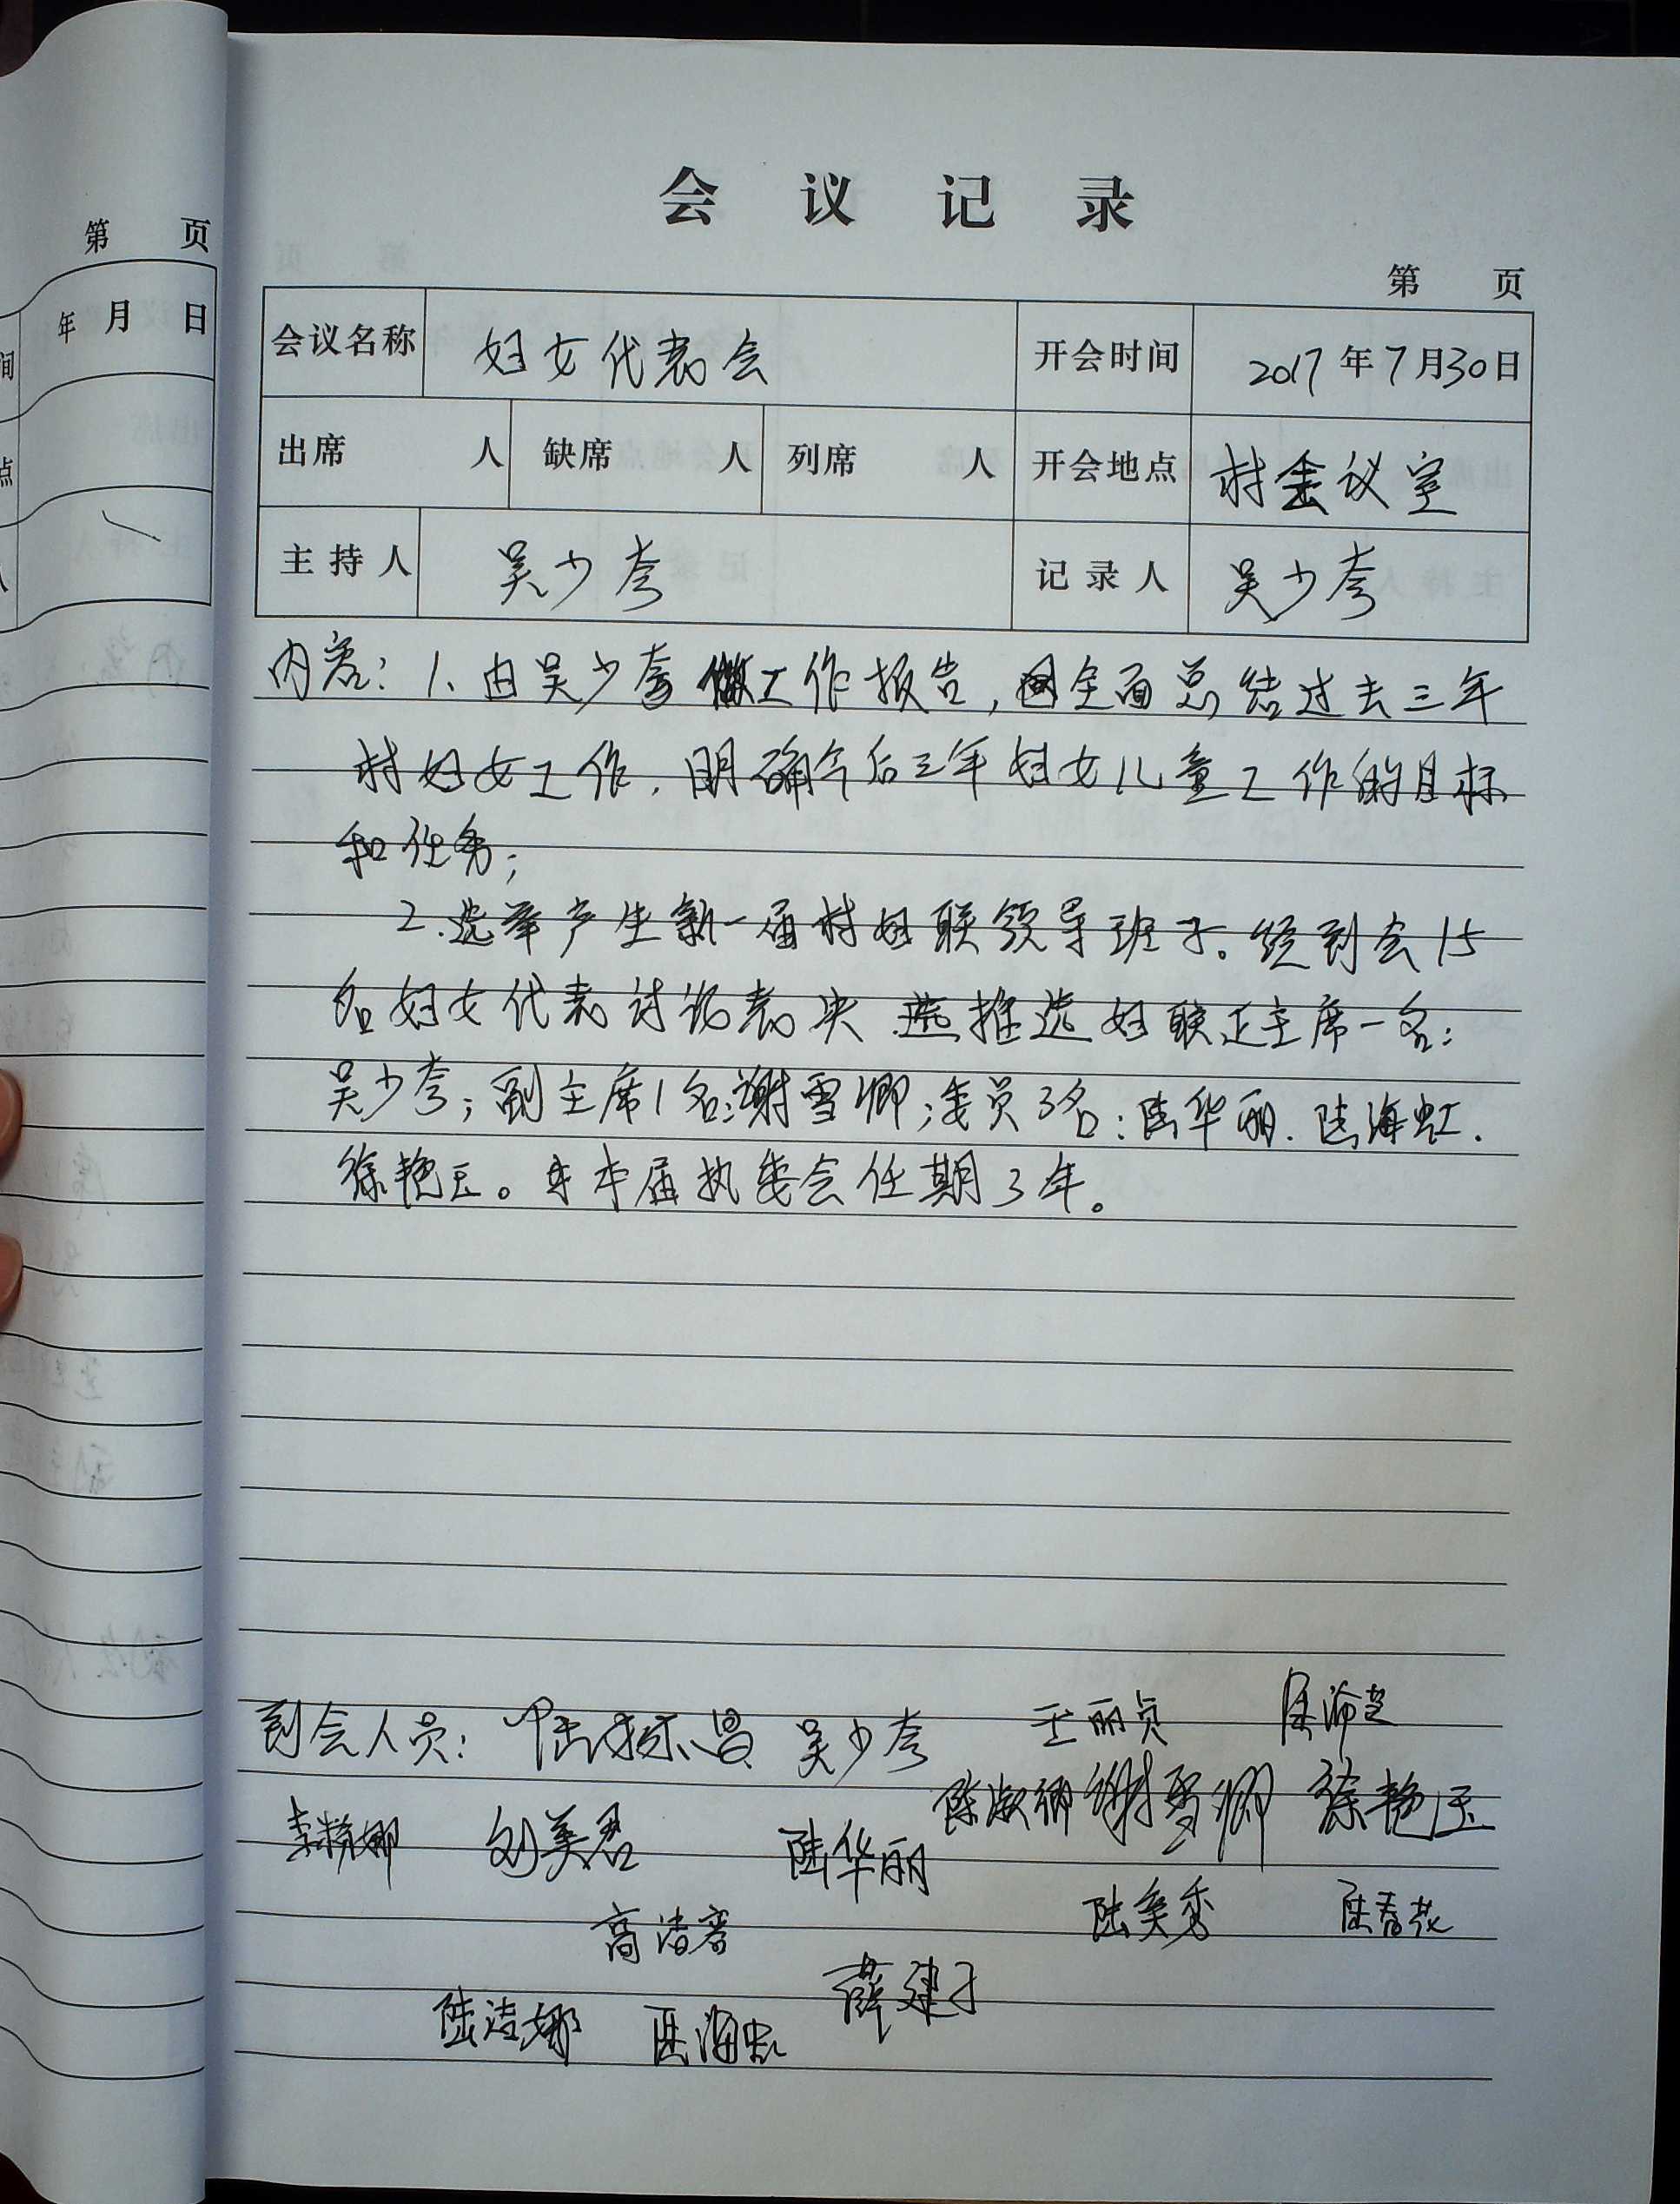 第 页
年 月 日
间
点
人
会议记录
第 页
会议名称 妇女代表会 开会时间 2017年7月30日
出席 人 缺席 人 列席 人 开会地点 村会议室
主持人 吴少夸 记录人 吴少夸
内容：1、由吴少夸做工作报告，全面总结过去三年
村妇女工作，明确今后三年妇女儿童工作的目标
和任务；
2.选举产生新一届村妇联领导班子。经到会15
名妇女代表讨论表决 推选妇联正主席一名：
吴少夸；副主席1名：谢雪卿；委员3名：陆华丽、陆海虹、
徐艳玉。本届执委会任期3年。
到会人员： 吴少夸 王丽贞
陈淑卿 谢雪卿 徐艳玉
李婷娜 刘美君 陆华丽
陆美秀 陆春花
高洁容
薛建子
陆洁娜 陆海虹